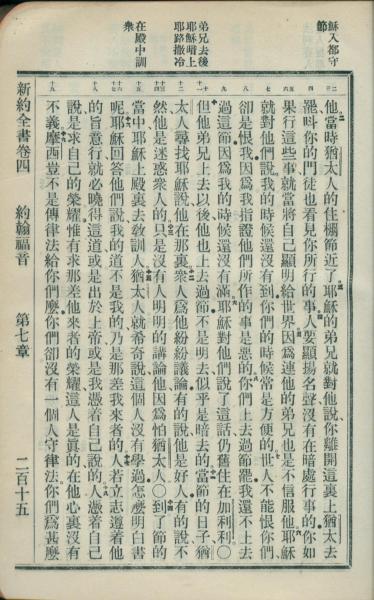 穌入都守
節
弟兄去後
耶穌暗上
耶路撒冷
在殿中訓
衆
他當時猶太人的住棚節近了耶穌的弟兄就對他說你離開這裏上猶太去
罷呌你的門徒也看見你所行的事人要顯揚名聲沒有在暗處行事的你如
果行這些事就當將自己顯明給世界因爲連他的弟兄也是不信服他耶穌
就對他們說我的時候還沒有到你們的時候常是方便的世人不能恨你們
卻是恨我因爲我指證他們所作的事是惡的你們上去過節罷我還不上去
過這節因爲我的時候還沒有滿耶穌對他們說了這話仍舊住在加利利〇
但他弟兄上去以後他也上去過節不是明去似乎是暗去的當節的日子猶
太人尋找耶穌說他在那裏衆人爲他紛紛議論有的說他是好人有的說不
然他是迷惑衆人的只是沒有人明明的講論他因爲怕猶太人〇到了節的
當中耶穌上殿裏去敎訓人猶太人就希奇說這個人沒有學過怎麽明白書
呢耶穌回答他們說我的道不是我的乃是那差我來者的人若立志遵着他
的旨意行就必曉得這道或是出於上帝或是我憑着自己說的人憑着自己
說是求自己的榮耀惟有求那差他來者的榮耀這人是眞的在他心裏沒有
不義摩西豈不是傳律法給你們麽你們卻沒有一個人守律法你們爲甚麽
新約全書卷四 約翰福音 第七章 二百十五